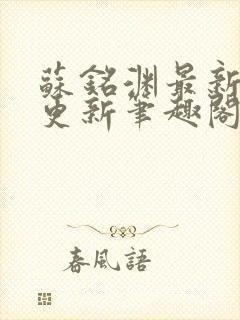 蘇銘淵最新
更新筆趣閣
春風語